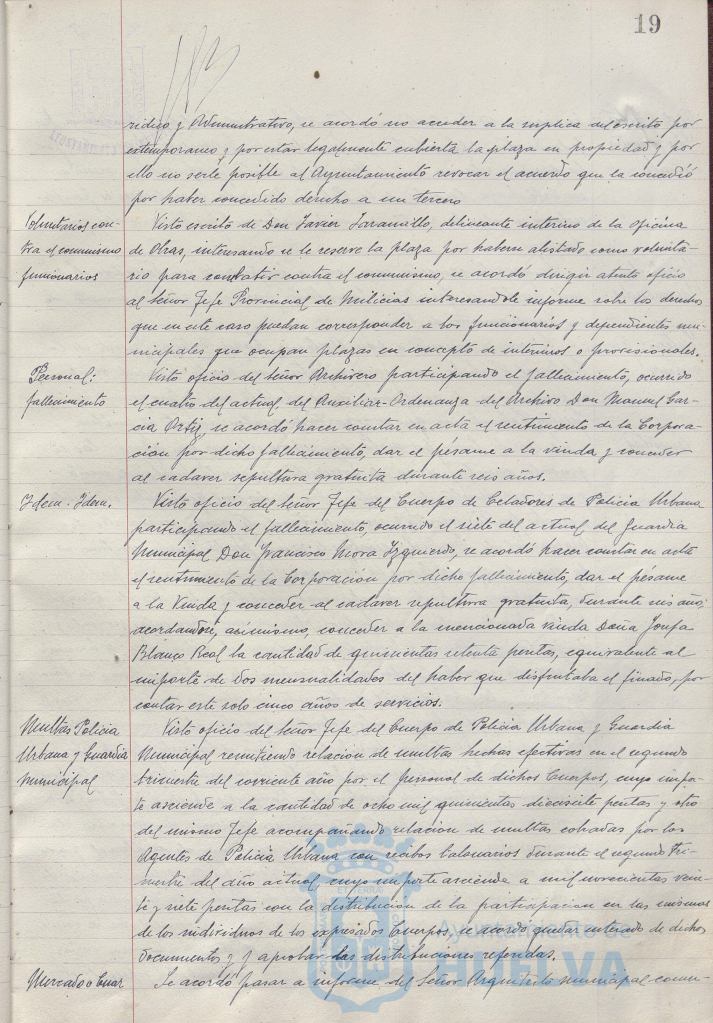 19
rídico y Administrativo, se acordó no acceder a la suplica del escrito por
extemporaneo y por estar legalmente cubierta la plaza en propiedad y por
ello no serle posible al Ayuntamiento revocar el acuerdo que la concedió
por haber concedido derecho a un tercero
Voluntarios con-
tra el comunismo
funcionarios
Visto escrito de Don Javier Jaramillo, delineante interino de la Oficina
de Obras, interesando se le reserve la plaza por haberse alistado como volunta-
rio para combatir contra el comunismo, se acordó dirigir atento oficio
al Señor Jefe Provincial de Milicias interesandole informe sobre los derechos
que en este caso puedan corresponder a los funcionarios y dependientes mu-
nicipales que ocupan plazas en concepto de interinos o provisionales.
Personal:
fallecimiento
Visto oficio del Señor Archivero participando el fallecimiento, ocurrido
el cuatro del actual, del Auxiliar-Ordenanza del Archivo Don Manuel Gar-
cía Ortiz, se acordó hacer constar en acta el sentimiento de la Corpora-
ción por dicho fallecimiento, dar el pésame a la viuda y conceder
al cadaver sepultura gratuita durante seis años.
Idem. Idem.
Visto oficio del Señor Jefe del Cuerpo de Celadores de Policia Urbana
participando el fallecimiento, ocurrido el siete del actual del Guardia
Municipal Don Francisco Mora Izquierdo, se acordó hacer constar en acta
el sentimiento de la Corporación por dicho fallecimiento, dar el pésame
a la Viuda y conceder al cadaver sepultura gratuita, durante seis años,
acordandose, asimismo, conceder a la mencionada viuda Doña Josefa
Blanco Real la cantidad de quinientas setenta pesetas, equivalente al
importe de dos mensualidades del haber que disfrutaba el finado, por
contar este solo cinco años de servicios.
Multas Policia
Urbana y Guardia
Municipal
Visto oficio del Señor Jefe del Cuerpo de Policia Urbana y Guardia
Municipal remitiendo relación de multas hechas efectivas en el segundo
trimestre del corriente año por el personal de dichos Cuerpos, cuyo impor-
te asciende a la cantidad de ocho mil quinientas diecisiete pesetas y otro
del mismo Jefe acompañando relación de multas cobradas por los
Agentes de Policia Urbana con recibos talonarios durante el segundo tri-
mestre del año actual, cuyo importe asciende a mil novecientas vein-
te y siete pesetas con la distribución de la participación en las mismas
de los individuos de los expresados Cuerpos, se acordó quedar enterado de dichos
documentos y aprobar las distribuciones referidas.
Mercado o
Se acordó pasar a informe del Señor Arquitecto municipal comu-
Ayuntamiento de
HUELVA